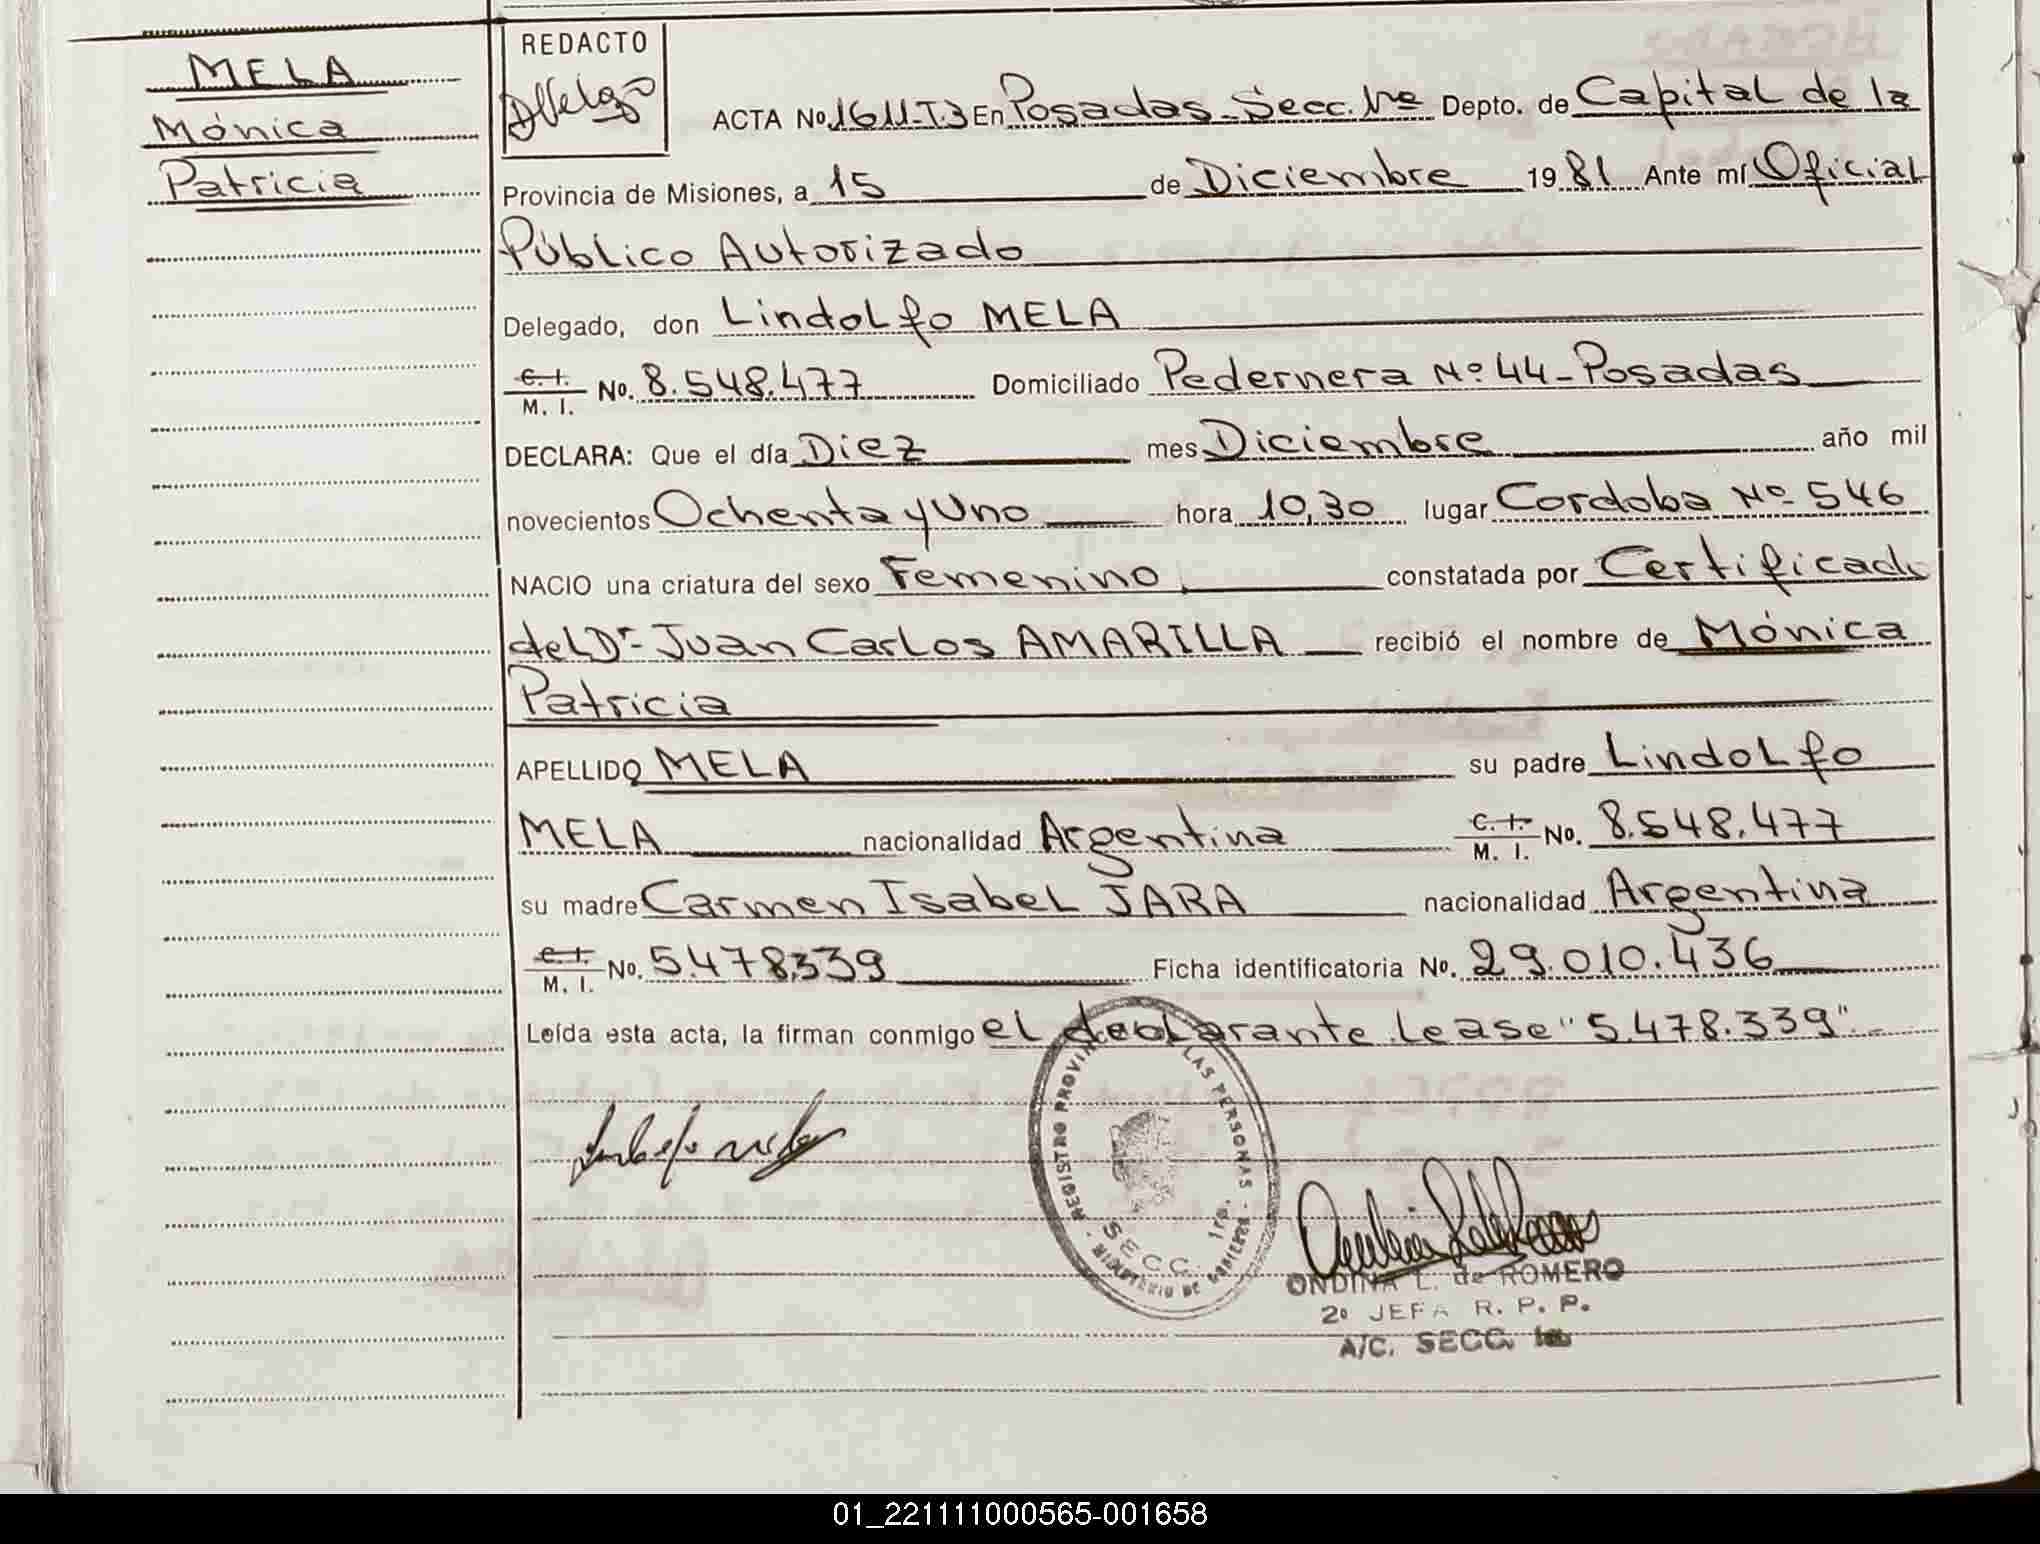 MELA
Mónica
Patricia
REDACTO
ACTA No. 1611-T.3 En Posadas-Secc. 1ª Depto. de Capital de la
Provincia de Misiones, a 15 de Diciembre 1981 Ante mí Oficial
Público Autorizado
Delegado, don Lindolfo MELA
C. I. M. I. No. 8.548.477 Domiciliado Pedernera Nº 44-Posadas
DECLARA: Que el día Diez mes Diciembre año mil
novecientos Ochenta y Uno hora 10,30 lugar Cordoba Nº 546
NACIO una criatura del sexo Femenino constatada por Certificado
del Dr- Juan Carlos AMARILLA recibió el nombre de Mónica
Patricia
APELLIDO MELA su padre Lindolfo
MELA nacionalidad Argentina C. I. M. I. No. 8.548.477
su madre Carmen Isabel JARA nacionalidad Argentina
C. I. M. I. No. 5.478.339 Ficha identificatoria No. 29.010.436
Leída esta acta, la firman conmigo el declarante. Lease "5.478.339".-
REGISTRO PROVIN LAS PERSONAS
SECC. 1ra.
MINISTERIO DE GOBIERNO
ONDINA L. de ROMERO
2º JEFA R. P. P.
A/C. SECC. 1a
01_221111000565-001658